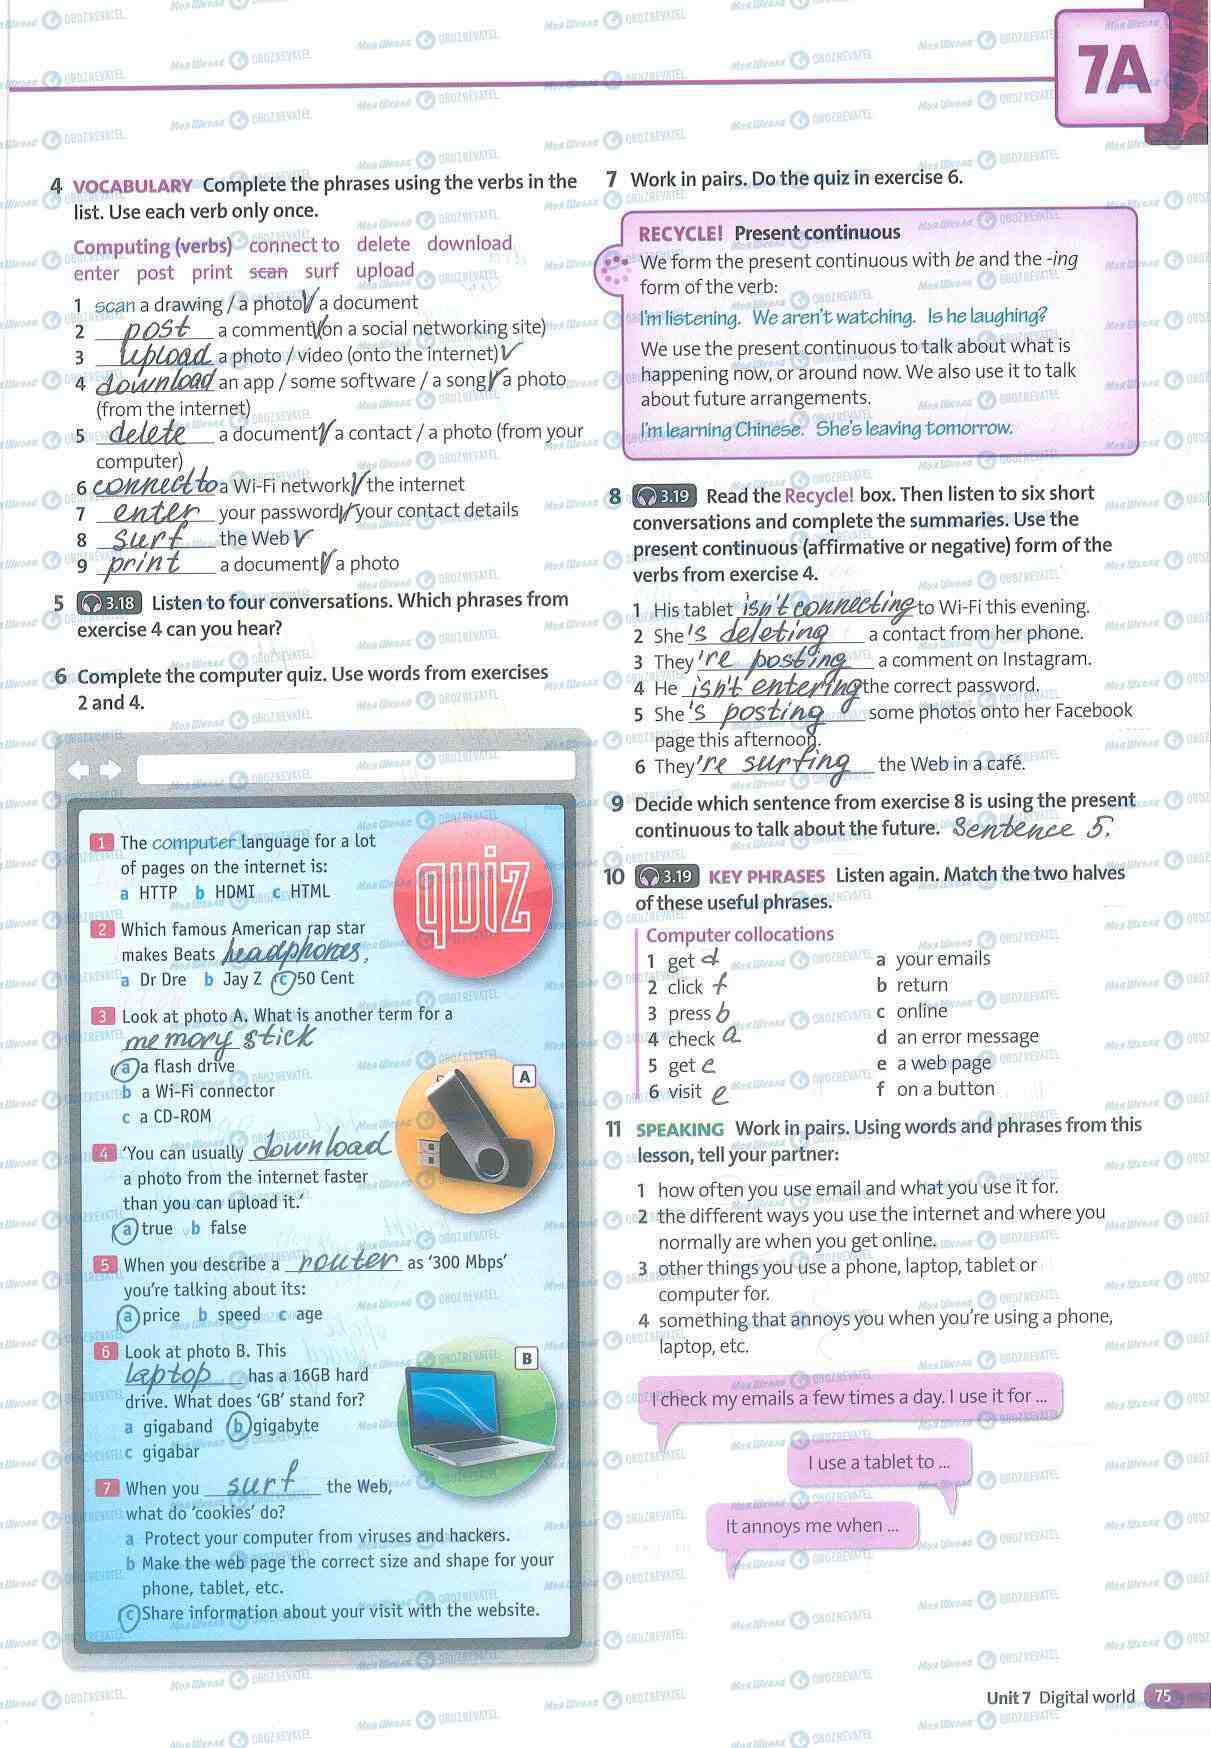 7A
4 VOCABULARY Complete the phrases using the verbs in the
list. Use each verb only once.
Computing (verbs) connect to delete download
enter post print scan surf upload
1 scan a drawing / a photo / a document
2 post a comment (on a social networking site)
3 upload a photo / video (onto the internet)
4 download an app / some software / a song / a photo
(from the internet)
5 delete a document / a contact / a photo (from your
computer)
6 connect to a Wi-Fi network / the internet
7 enter your password / your contact details
8 surf the Web
9 print a document / a photo
5 3.18 Listen to four conversations. Which phrases from
exercise 4 can you hear?
6 Complete the computer quiz. Use words from exercises
2 and 4.
quiz
1 The computer language for a lot
of pages on the internet is:
a HTTP b HDMI c HTML
2 Which famous American rap star
makes Beats headphones,
a Dr Dre b Jay Z c 50 Cent
3 Look at photo A. What is another term for a
memory stick
a a flash drive
b a Wi-Fi connector
c a CD-ROM
A
4 'You can usually download
a photo from the internet faster
than you can upload it.'
a true b false
5 When you describe a router as '300 Mbps'
you're talking about its:
a price b speed c age
6 Look at photo B. This
laptop has a 16GB hard
drive. What does 'GB' stand for?
a gigaband b gigabyte
c gigabar
B
7 When you surf the Web,
what do 'cookies' do?
a Protect your computer from viruses and hackers.
b Make the web page the correct size and shape for your
phone, tablet, etc.
c Share information about your visit with the website.
7 Work in pairs. Do the quiz in exercise 6.
RECYCLE! Present continuous
We form the present continuous with be and the -ing
form of the verb:
I'm listening. We aren't watching. Is he laughing?
We use the present continuous to talk about what is
happening now, or around now. We also use it to talk
about future arrangements.
I'm learning Chinese. She's leaving tomorrow.
8 3.19 Read the Recycle! box. Then listen to six short
conversations and complete the summaries. Use the
present continuous (affirmative or negative) form of the
verbs from exercise 4.
1 His tablet isn't connecting to Wi-Fi this evening.
2 She's deleting a contact from her phone.
3 They're posting a comment on Instagram.
4 He isn't entering the correct password.
5 She's posting some photos onto her Facebook
page this afternoon.
6 They're surfing the Web in a café.
9 Decide which sentence from exercise 8 is using the present
continuous to talk about the future. Sentence 5.
10 3.19 KEY PHRASES Listen again. Match the two halves
of these useful phrases.
Computer collocations
1 get d a your emails
2 click f b return
3 press b c online
4 check a d an error message
5 get c e a web page
6 visit e f on a button
11 SPEAKING Work in pairs. Using words and phrases from this
lesson, tell your partner:
1 how often you use email and what you use it for.
2 the different ways you use the internet and where you
normally are when you get online.
3 other things you use a phone, laptop, tablet or
computer for.
4 something that annoys you when you're using a phone,
laptop, etc.
I check my emails a few times a day. I use it for ...
I use a tablet to ...
It annoys me when ...
Unit 7 Digital world 75
Моя Школа OBOZREVATEL